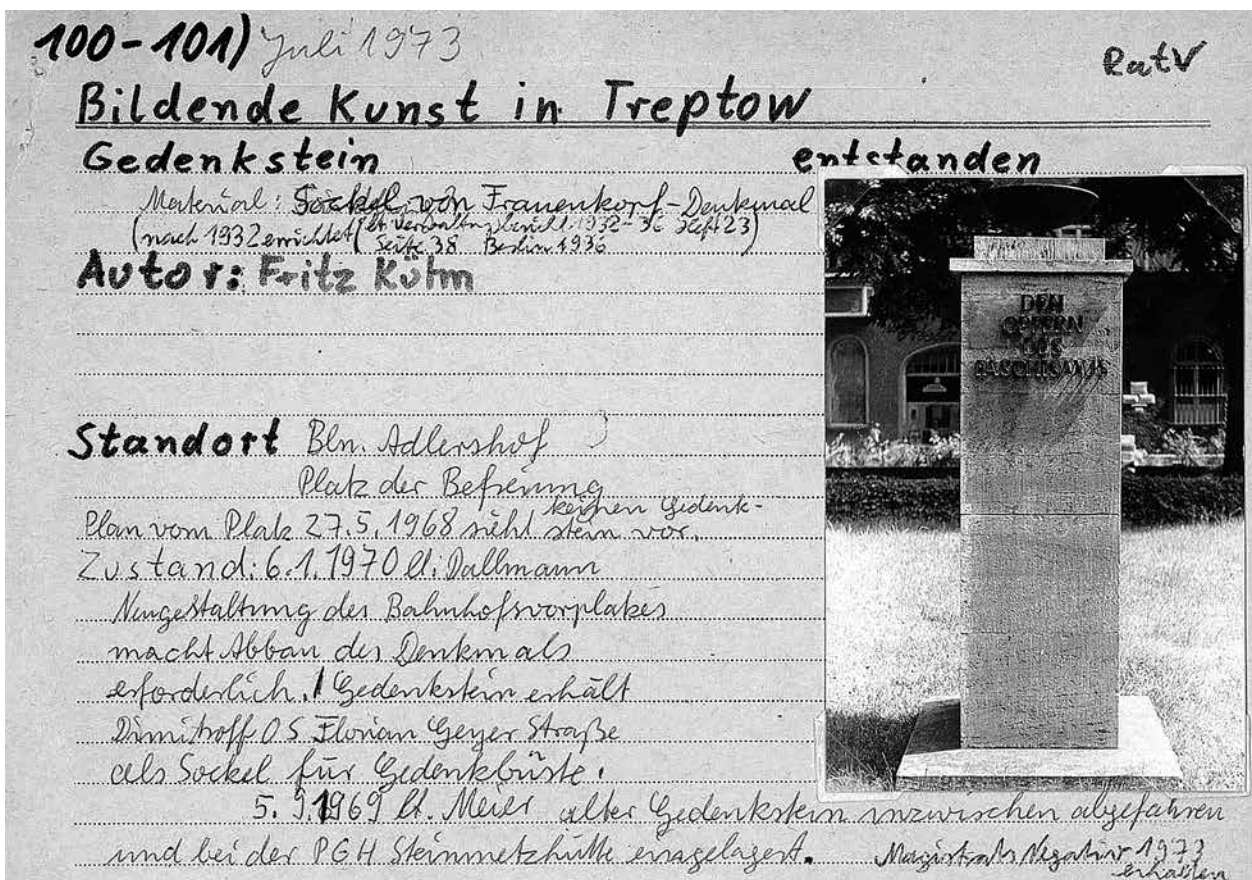 100-101) Juli 1973
RatV
Bildende Kunst in Treptow
Gedenkstein entstanden
Material: Sockel von Frauenkopf-Denkmal
(nach 1932 errichtet (lt. Verwaltungsbericht 1932-36 Heft 23)
Seite 38 Berlin 1936
Autor: Fritz Kühn
DEN
OPFERN
DES
FASCHISMUS
Standort Bln. Adlershof
Platz der Befreiung
keinen Gedenk-
Plan vom Platz 27.5.1968 sieht stein vor.
Zustand: 6.1.1970 lt. Dallmann
Neugestaltung des Bahnhofsvorplatzes
macht Abbau des Denkmals
erforderlich. / Gedenkstein erhält
Dimitroff OS Florian Geyer Straße
als Sockel für Gedenkbüste.
5.9.1969 lt. Meier alter Gedenkstein inzwischen abgefahren
und bei der PGH Steinmetzhütte eingelagert. Magistrats Negativ 1973
erhalten